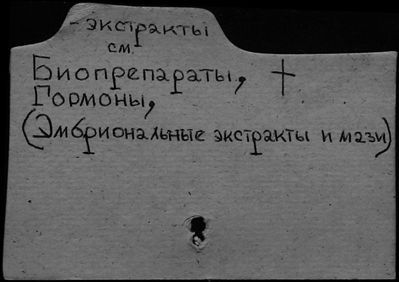 - экстракты
см.
Биопрепараты, +
Гормоны,
(Эмбриональные экстракты и мази)